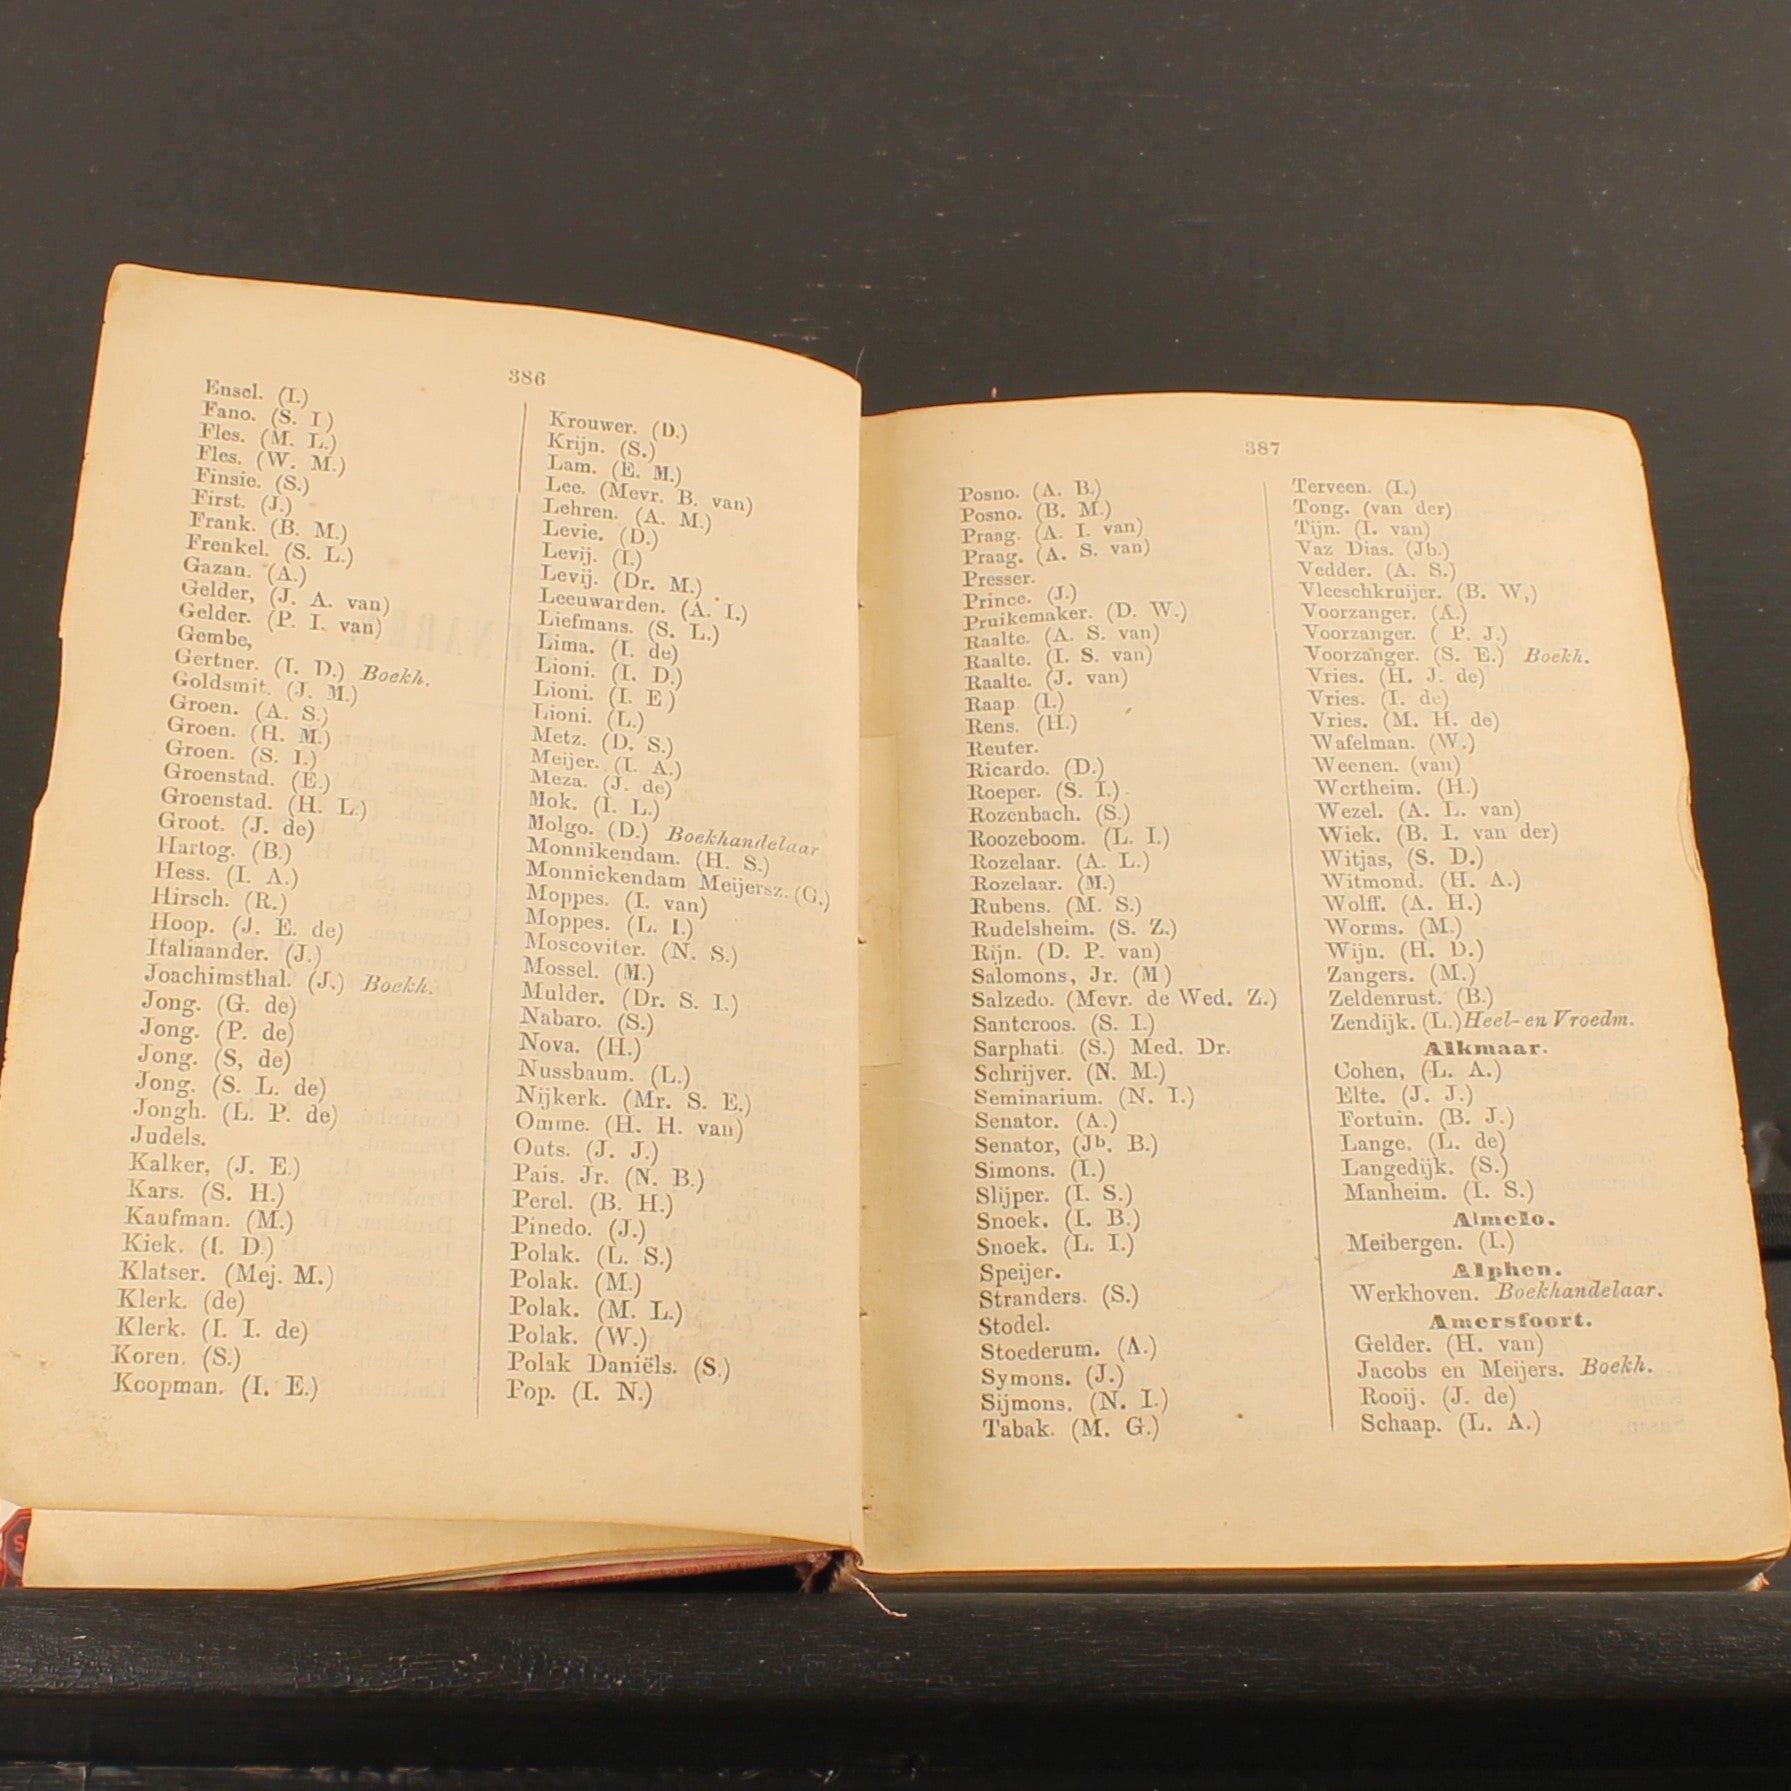 386
Ensel. (I.)
Fano. (S. I)
Fles. (M. L.)
Fles. (W. M.)
Finsie. (S.)
First. (J.)
Frank. (B. M.)
Frenkel. (S. L.)
Gazan. (A.)
Gelder, (J. A. van)
Gelder. (P. I. van)
Gembe,
Gertner. (I. D.) Boekh.
Goldsmit. (J. M.)
Groen. (A. S.)
Groen. (H. M.)
Groen. (S. I.)
Groenstad. (E.)
Groenstad. (H. L.)
Groot. (J. de)
Hartog. (B.)
Hess. (I. A.)
Hirsch. (R.)
Hoop. (J. E. de)
Italiaander. (J.)
Joachimsthal. (J.) Boekh.
Jong. (G. de)
Jong. (P. de)
Jong. (S, de)
Jong. (S. L. de)
Jongh. (L. P. de)
Judels.
Kalker, (J. E.)
Kars. (S. H.)
Kaufman. (M.)
Kiek. (I. D.)
Klatser. (Mej. M.)
Klerk. (de)
Klerk. (I. I. de)
Koren. (S.)
Koopman. (I. E.)
Krouwer. (D.)
Krijn. (S.)
Lam. (E. M.)
Lee. (Mevr. B. van)
Lehren. (A. M.)
Levie. (D.)
Levij. (I.)
Levij. (Dr. M.)
Leeuwarden. (A. I.)
Liefmans. (S. L.)
Lima. (I. de)
Lioni. (I. D.)
Lioni. (I. E)
Lioni. (L.)
Metz. (D. S.)
Meijer. (I. A.)
Meza. (J. de)
Mok. (I. L.)
Molgo. (D.) Boekhandelaar
Monnikendam. (H. S.)
Monnickendam Meijersz. (G.)
Moppes. (I. van)
Moppes. (L. I.)
Moscoviter. (N. S.)
Mossel. (M.)
Mulder. (Dr. S. I.)
Nabaro. (S.)
Nova. (H.)
Nussbaum. (L.)
Nijkerk. (Mr. S. E.)
Omme. (H. H. van)
Outs. (J. J.)
Pais. Jr. (N. B.)
Perel. (B. H.)
Pinedo. (J.)
Polak. (L. S.)
Polak. (M.)
Polak. (M. L.)
Polak. (W.)
Polak Daniëls. (S.)
Pop. (I. N.)
387
Posno. (A. B.)
Posno. (B. M.)
Praag. (A. I. van)
Praag. (A. S. van)
Presser.
Prince. (J.)
Pruikemaker. (D. W.)
Raalte. (A. S. van)
Raalte. (I. S. van)
Raalte. (J. van)
Raap (I.)
Rens. (H.)
Reuter.
Ricardo. (D.)
Roeper. (S. I.)
Rozenbach. (S.)
Roozeboom. (L. I.)
Rozelaar. (A. L.)
Rozelaar. (M.)
Rubens. (M. S.)
Rudelsheim. (S. Z.)
Rijn. (D. P. van)
Salomons, Jr. (M)
Salzedo. (Mevr. de Wed. Z.)
Santcroos. (S. I.)
Sarphati. (S.) Med. Dr.
Schrijver. (N. M.)
Seminarium. (N. I.)
Senator. (A.)
Senator, (Jb. B.)
Simons. (I.)
Slijper. (I. S.)
Snoek. (I. B.)
Snoek. (L. I.)
Speijer.
Stranders. (S.)
Stodel.
Stoederum. (A.)
Symons. (J.)
Sijmons. (N. I.)
Tabak. (M. G.)
Terveen. (I.)
Tong. (van der)
Tijn. (I. van)
Vaz Dias. (Jb.)
Vedder. (A. S.)
Vleeschkruijer. (B. W,)
Voorzanger. (A.)
Voorzanger. ( P. J.)
Voorzanger. (S. E.) Boekh.
Vries. (H. J. de)
Vries. (I. de)
Vries. (M. H. de)
Wafelman. (W.)
Weenen. (van)
Wertheim. (H.)
Wezel. (A. L. van)
Wiek. (B. I. van der)
Witjas, (S. D.)
Witmond. (H. A.)
Wolff. (A. H.)
Worms. (M.)
Wijn. (H. D.)
Zangers. (M.)
Zeldenrust. (B.)
Zendijk. (L.) Heel- en Vroedm.
Alkmaar.
Cohen, (L. A.)
Elte. (J. J.)
Fortuin. (B. J.)
Lange. (L. de)
Langedijk. (S.)
Manheim. (I. S.)
Almelo.
Meibergen. (I.)
Alphen.
Werkhoven. Boekhandelaar.
Amersfoort.
Gelder. (H. van)
Jacobs en Meijers. Boekh.
Rooij. (J. de)
Schaap. (L. A.)